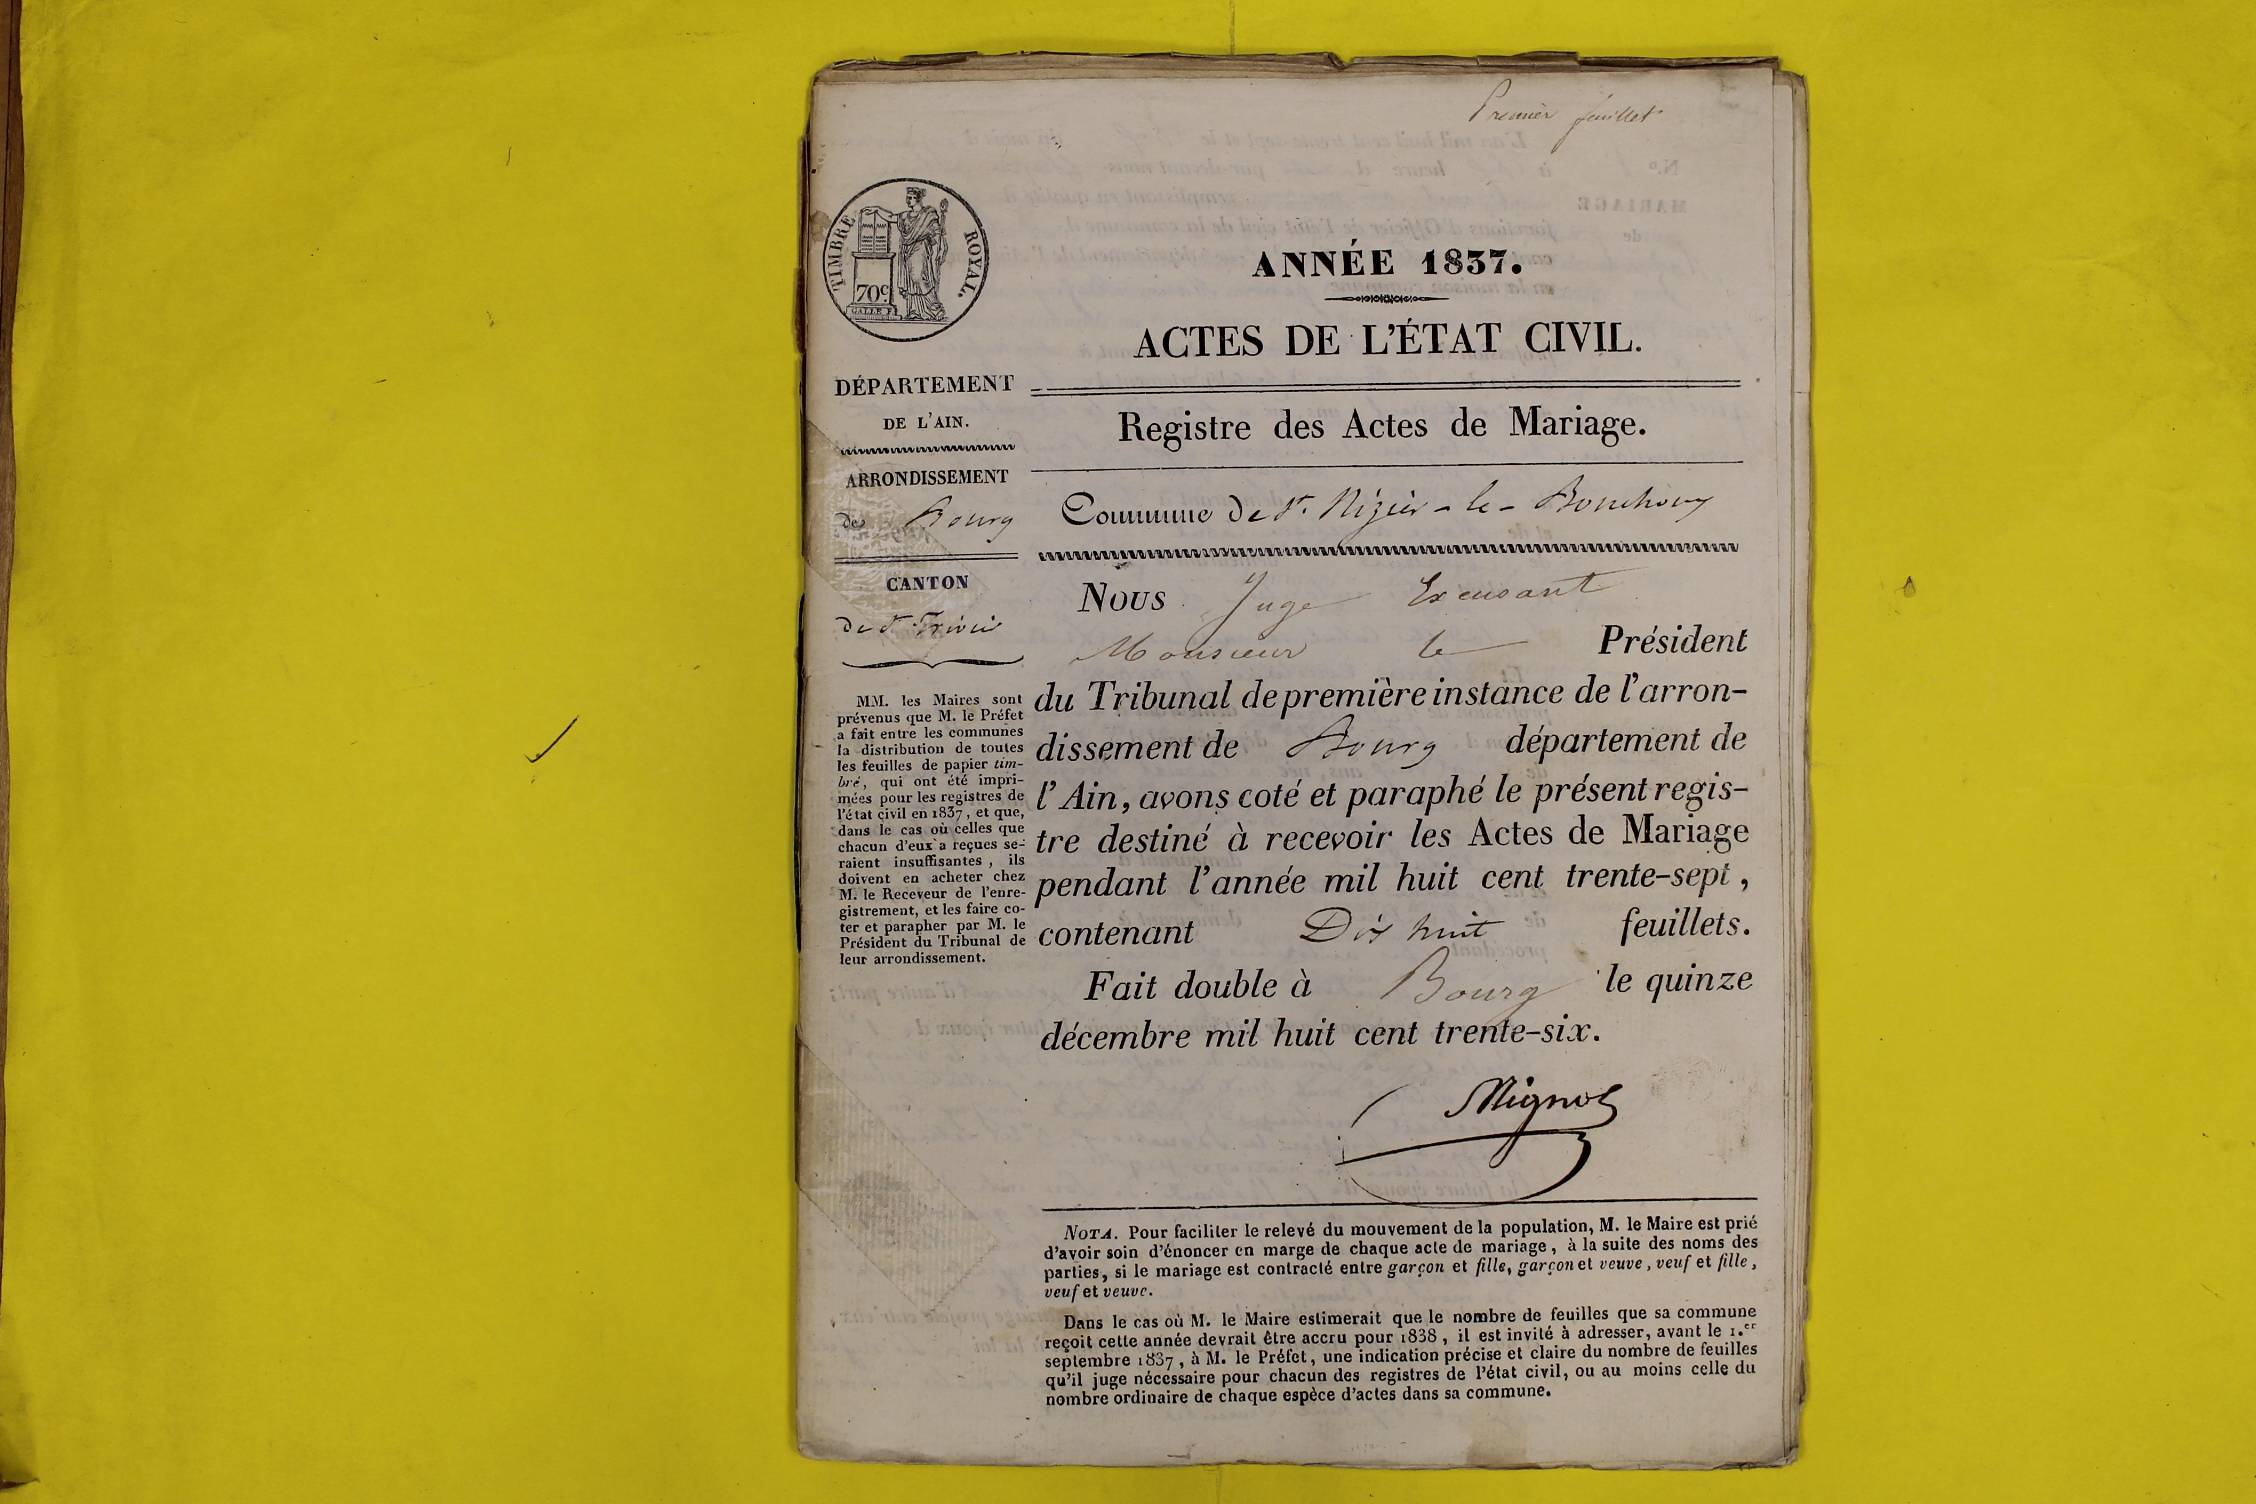 Premier feuillet
TIMBRE ROYAL.
70c
GALLE F.
ANNÉE 1837.
ACTES DE L'ÉTAT CIVIL.
DÉPARTEMENT
DE L'AIN.
Registre des Actes de Mariage.
ARRONDISSEMENT
de Bourg
Commune de St. Nizier-le-Bouchoux
CANTON
de St Trivier
MM. les Maires sont
prévenus que M. le Préfet
a fait entre les communes
la distribution de toutes
les feuilles de papier tim-
bré, qui ont été impri-
mées pour les registres de
l'état civil en 1837, et que,
dans le cas où celles que
chacun d'eux a reçues se-
raient insuffisantes, ils
doivent en acheter chez
M. le Receveur de l'enre-
gistrement, et les faire co-
ter et parapher par M. le
Président du Tribunal de
leur arrondissement.
Nous Juge Excusant
Monsieur le Président
du Tribunal de première instance de l'arron-
dissement de Bourg département de
l'Ain, avons coté et paraphé le présent regis-
tre destiné à recevoir les Actes de Mariage
pendant l'année mil huit cent trente-sept,
contenant Dix huit feuillets.
Fait double à Bourg le quinze
décembre mil huit cent trente-six.
NOTA. Pour faciliter le relevé du mouvement de la population, M. le Maire est prié
d'avoir soin d'énoncer en marge de chaque acte de mariage, à la suite des noms des
parties, si le mariage est contracté entre garçon et fille, garçon et veuve, veuf et fille,
veuf et veuve.
Dans le cas où M. le Maire estimerait que le nombre de feuilles que sa commune
reçoit cette année devrait être accru pour 1838, il est invité à adresser, avant le 1.er
septembre 1837, à M. le Préfet, une indication précise et claire du nombre de feuilles
qu'il juge nécessaire pour chacun des registres de l'état civil, ou au moins celle du
nombre ordinaire de chaque espèce d'actes dans sa commune.